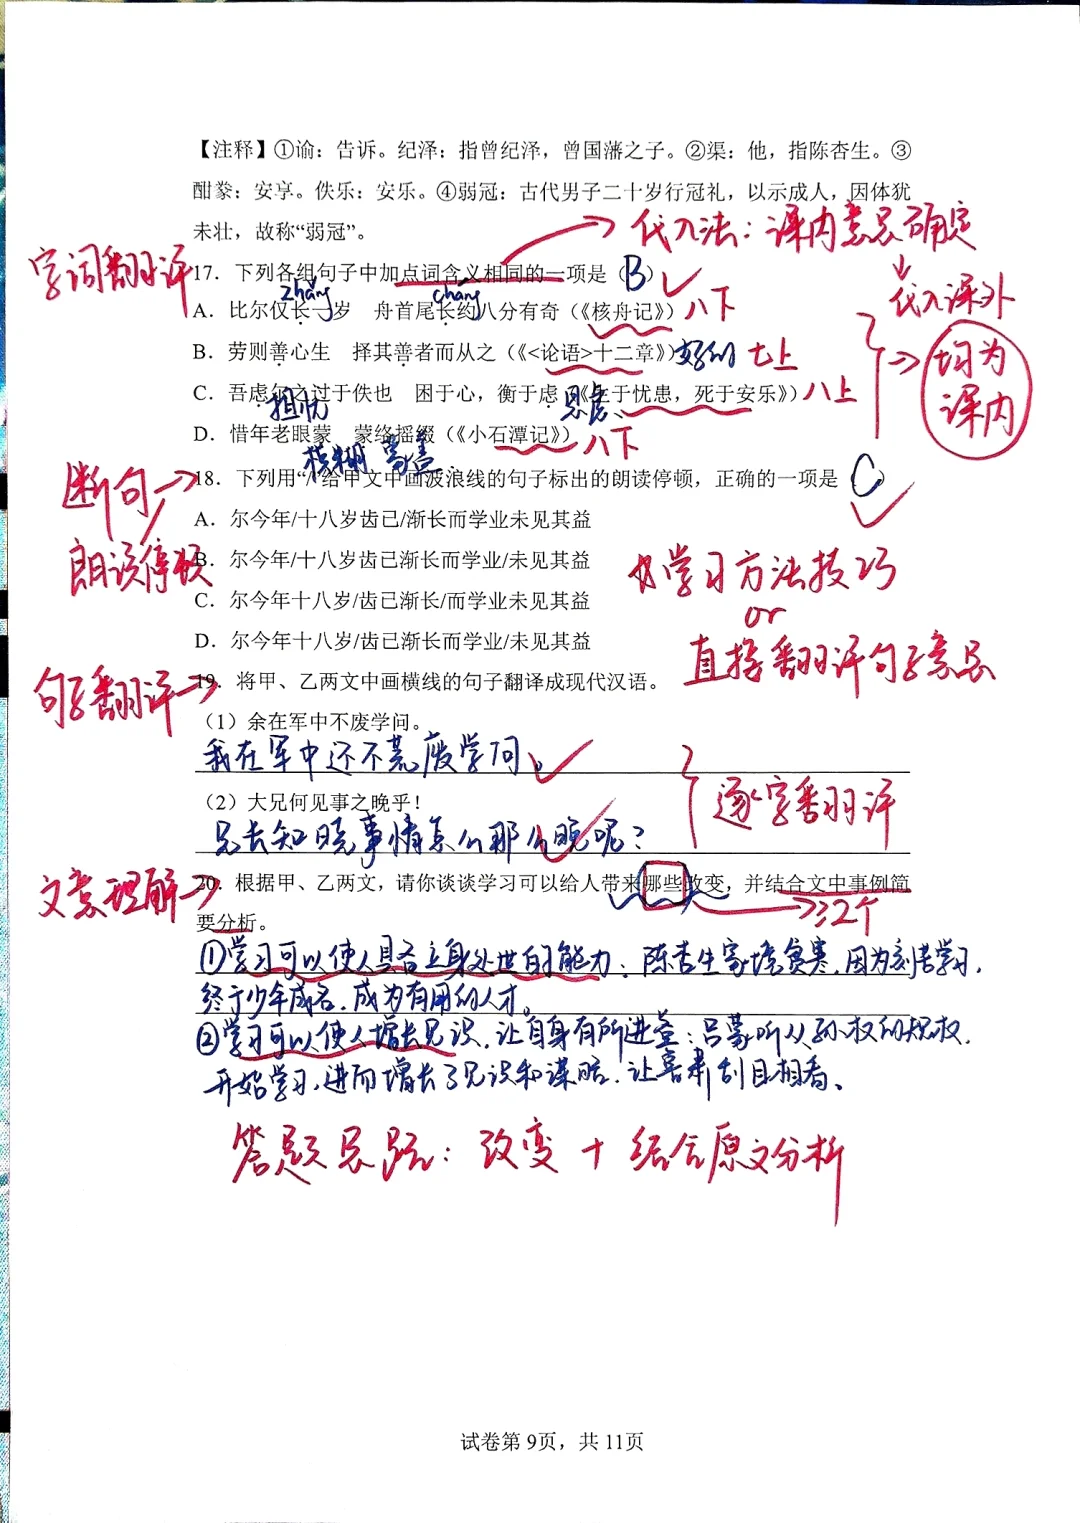 【注释】①谕：告诉。纪泽：指曾纪泽，曾国藩之子。②渠：他，指陈杏生。③
酣豢：安享。佚乐：安乐。④弱冠：古代男子二十岁行冠礼，以示成人，因体犹
未壮，故称“弱冠”。
代入法：课内意思确定
代入课外
字词翻译
17．下列各组句子中加点词含义相同的一项是（B）
zhǎng
cháng
A．比尔仅长一岁 舟首尾长约八分有奇（《核舟记》）八下
B．劳则善心生 择其善者而从之（《<论语>十二章》）好的 七上
均为
课内
C．吾虑尔之过于佚也 困于心，衡于虑（《生于忧患，死于安乐》）八上
担忧
思虑
D．惜年老眼蒙 蒙络摇缀（《小石潭记》）八下
模糊 覆盖
断句
朗读停顿
18．下列用“/”给甲文中画波浪线的句子标出的朗读停顿，正确的一项是（C）
A．尔今年/十八岁齿已/渐长而学业未见其益
B．尔今年/十八岁齿已渐长而学业/未见其益
C．尔今年十八岁/齿已渐长/而学业未见其益
D．尔今年十八岁/齿已渐长而学业/未见其益
学习方法技巧
or
直接翻译句子意思
句子翻译
19．将甲、乙两文中画横线的句子翻译成现代汉语。
（1）余在军中不废学问。
我在军中还不荒废学问。
（2）大兄何见事之晚乎！
兄长知晓事情怎么那么晚呢？
逐字翻译
文意理解
20．根据甲、乙两文，请你谈谈学习可以给人带来哪些改变，并结合文中事例简
要分析。
≥2个
①学习可以使人具备立身处世的能力：陈杏生家境贫寒，因为刻苦学习，
终于少年成名，成为有用的人才。
②学习可以使人增长见识，让自身有所进益：吕蒙听从孙权的规权，
开始学习，进而增长了见识和谋略，让鲁肃刮目相看、
答题思路：改变 + 结合原文分析
试卷第 9页，共 11页